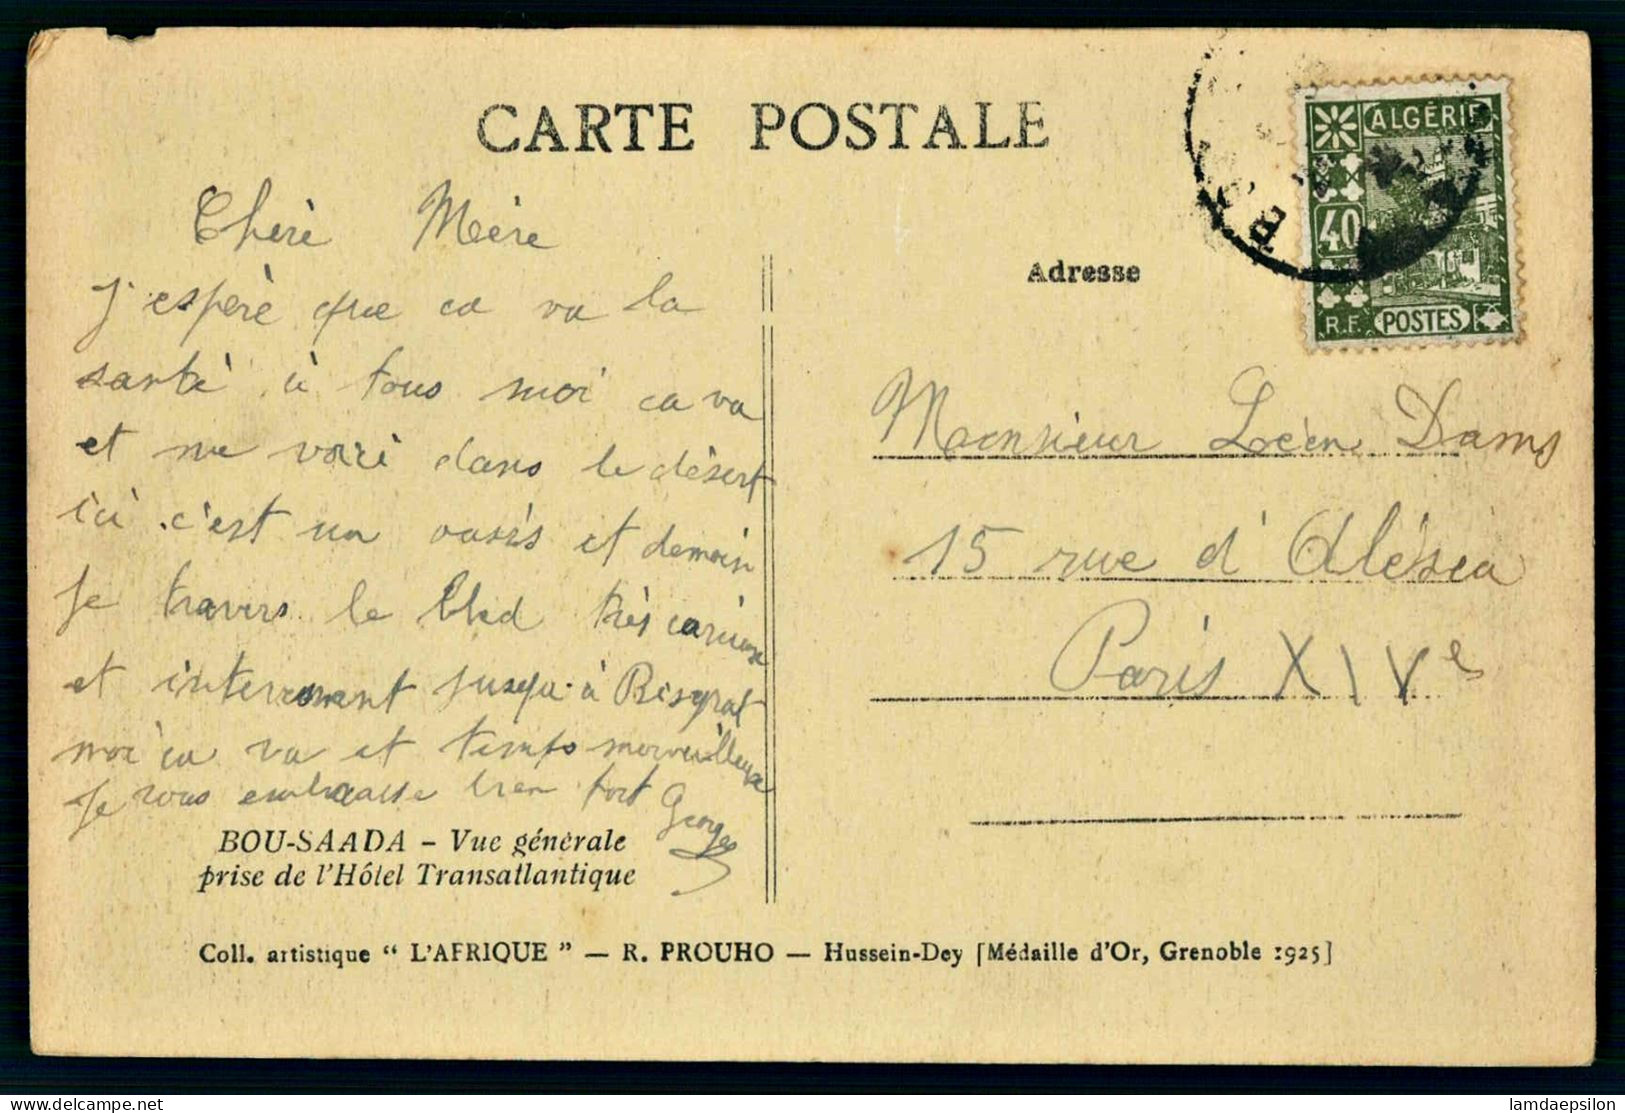 CARTE POSTALE
ALGÉRIE
40
R.F. POSTES
Chèrè Mère
J'espère que ca va la
santè à tous moi ca va
et me voici dans le dèsert
ici c'est un oasis et demain
je travers le bled très curieux
et interresent jusqu'à Bisgrat
moi ca va et temps merveilleux
Je vous embrasse bien fort
Georges
BOU-SAADA - Vue générale
prise de l'Hôtel Transatlantique
Adresse
Monsieur Léon Dams
15 rue d'Alésia
Paris XIVe
Coll. artistique “ L'AFRIQUE ” — R. PROUHO — Hussein-Dey [Médaille d'Or, Grenoble 1925]
lamdaepsilon
delcampe.net